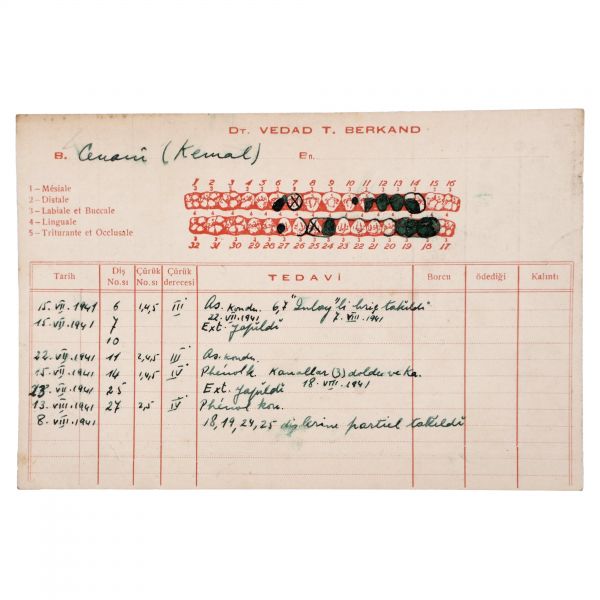 DT. VEDAD T. BERKAND
B. Cenanî (Kemal) Bn.
1 – Mésiale
2 – Distale
3 – Labiale et Buccale
4 – Linguale
5 – Triturante et Occlusale
1 2 3 4 5 6 7 8 9 10 11 12 13 14 15 16
32 31 30 29 28 27 26 25 24 23 22 21 20 19 18 17
Tarih Diş No.sı Çürük No.sı Çürük derecesi TEDAVİ Borcu ödediği Kalıntı
15.VII.1941 6 1,4,5 III As. kondu. 6,7 "Inlay"li briç takıldı
22.VII.1941 7.VIII.1941
15.VII.1941 7 Ext. yapıldı
10
22.VII.1941 11 2,4,5 III As. kondu.
15.VII.1941 14 1,4,5 IV Phénol k. Kanallar (3) doldu ve ka.
23.VII.1941 25 Ext. yapıldı 18.VIII.1941
13.VIII.1941 27 2,5 IV Phénol kon.
8.VIII.1941 18,19,24,25 dişlerine partiel takıldı